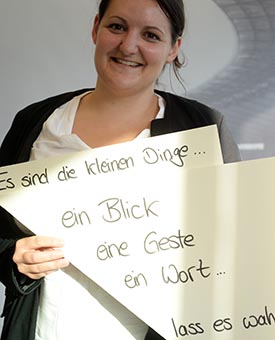 Es sind die kleinen Dinge ...
ein Blick
eine Geste
ein Wort ...
lass es